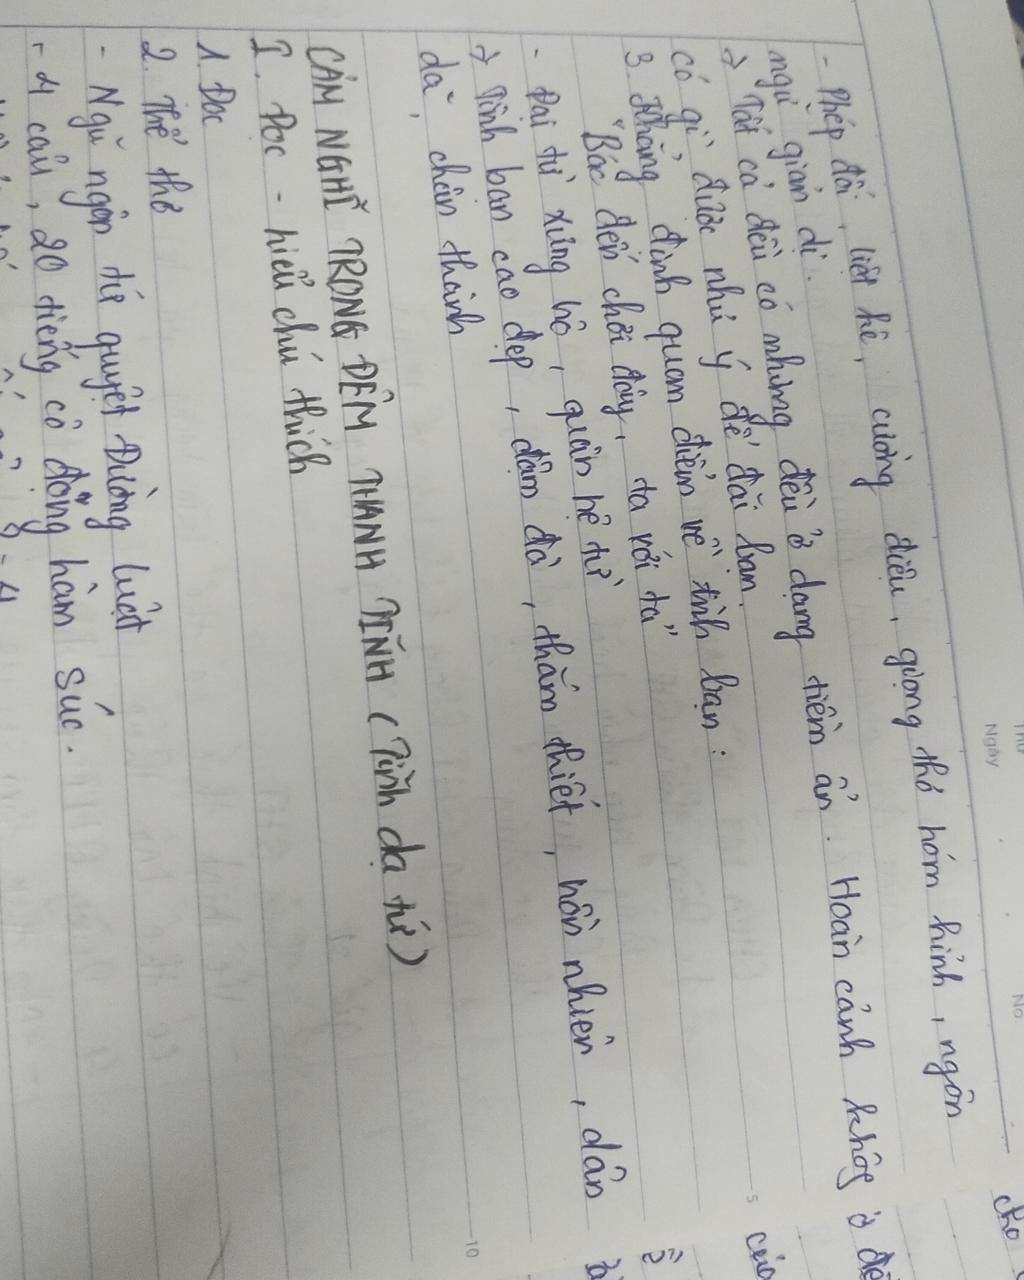 Ngày
No.
- Phép đối, liệt kê, cường điệu, giọng thơ hóm hỉnh, ngôn
ngữ giản dị.
→ Tất cả đều có nhưng đều ở dạng tiềm ẩn. Hoàn cảnh không
có gì được như ý để đãi bạn.
3. Khẳng định quan điểm về tình bạn:
"Bác đến chơi đây, ta với ta"
- Đại từ xưng hô, quan hệ từ
→ Tình bạn cao đẹp, đậm đà, thắm thiết, hồn nhiên, dân
dã, chân thành
CẢM NGHĨ TRONG ĐÊM THANH TĨNH (Tĩnh dạ tứ)
I. Đọc - hiểu chú thích
1. Đọc
2. Thể thơ
- Ngũ ngôn tứ quyệt Đường luật
- 4 câu, 20 tiếng cô đọng hàm súc.
5
10
cho
của